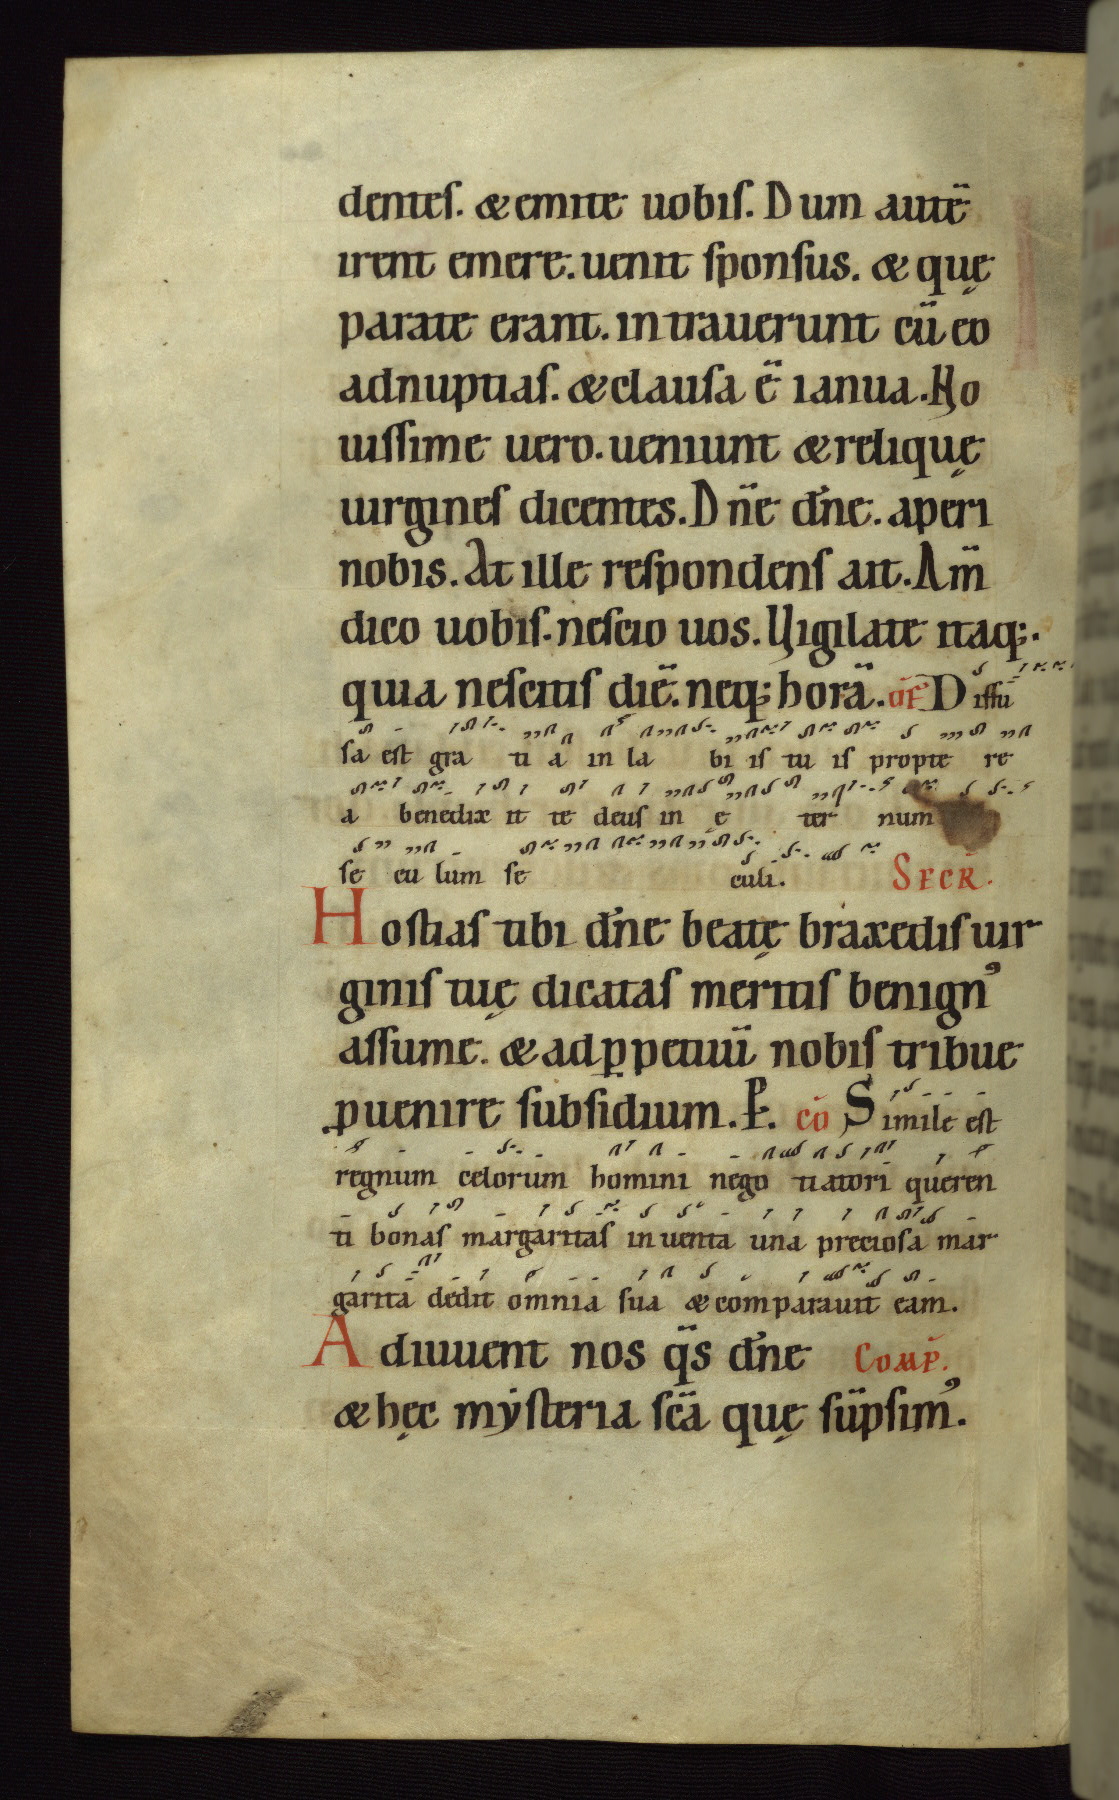 dentes. & emite uobis. Dum autē
irent emere. uenit sponsus. & quę
parate erant. intrauerunt cū eo
ad nuptias. & clausa ē ianua. No
uissime uero. ueniunt & reliquę
uirgines dicentes. Dn̄e dn̄e. aperi
nobis. At ille respondens ait. Am̄
dico uobis. nescio uos. Uigilate itaq;.
quia nescitis diē. neq; horā. of̄ Diffu
sa est gra ti a in la bi is tu is propte re
a benedix it te deus in ę ter num
se cu lum se culi. SECR̄.
Hostias tibi dn̄e beatę braxedis uir
ginis tuę dicatas meritis benignꝰ
assume. & ad ꝑpetuū nobis tribue
ꝑuenire subsidium. P. cō Simile est
regnum celorum homini nego tiatori queren
ti bonas margaritas inuenta una preciosa mar
garitā dedit omnia sua & comparauit eam.
Adiuuent nos q̄s dn̄e COMP̄.
& hęc mẏsteria sc̄a quę sūpsimꝰ.